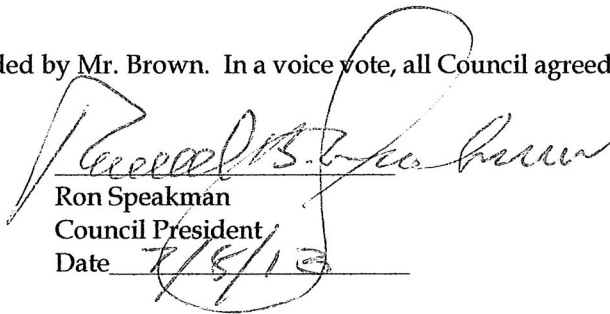 ded by Mr. Brown. In a voice vote, all Council agreed
Ron Speakman
Council President
Date 7/8/13